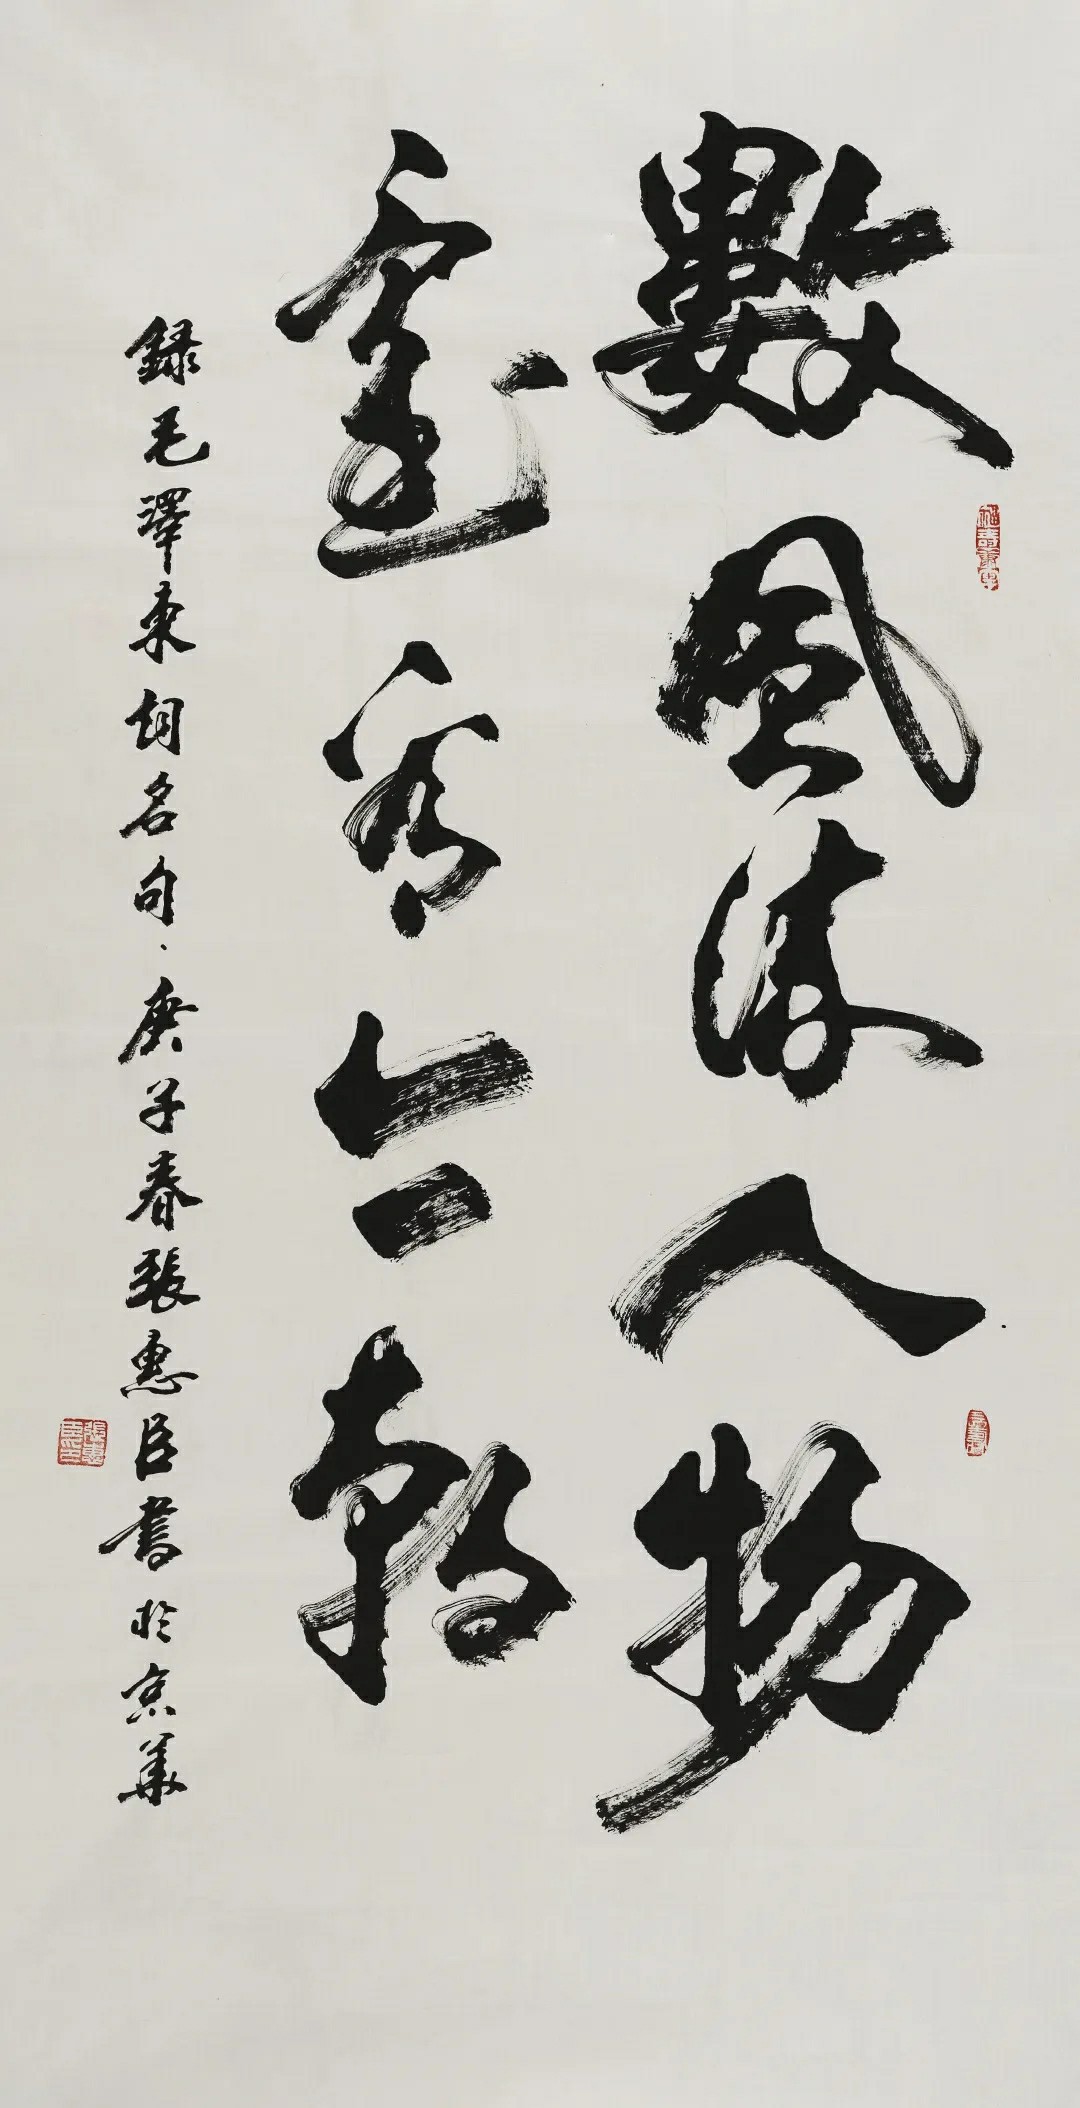 數風流人物
還看今朝
録毛澤東詞名句庚子春張惠臣書於京華
張惠臣印